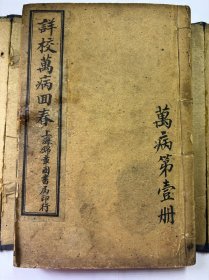 詳校萬病回春
上海錦章圖書局印行
萬病第壹册